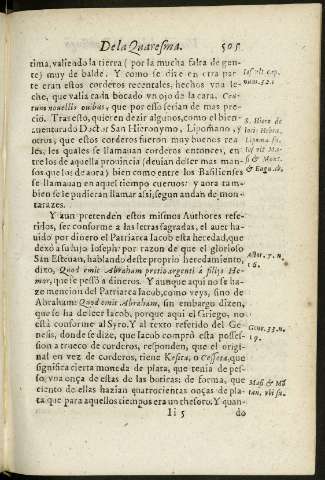 De la Quaresma. 505
tima, valiendo la tierra (por la mucha falta de gen-
te) muy de balde. Y como se dize en otra par
te eran estos corderos recentales, hechos vna le-
che, que valia cada bocado vn ojo de la cara. Cen-
tum nouellis ouibus, que por esso serian de mas pre-
cio. Tras esto, quieren dezir algunos, como el bien-
auenturado Doctor San Hieronymo, Lipomano, y
otros, que estos corderos fueron muy buenos rea
les, los quales se llamauan corderos entonces, en
tre los de aquella prouincia (deuian de ser mas man-
sos que los de aora) bien como entre los Basilienses
se llamauan en aquel tiempo cueruos: y aora tam-
bien se le pudieran llamar assi, segun andan de mon-
tarazes.
Y aun pretenden estos mismos Authores refe-
ridos, ser conforme a las letras sagradas, el auer ha-
uido por dinero el Patriarca Iacob esta heredad, que
dexò a su hijo Ioseph: por razon de que el glorioso
San Esteuan, hablando deste proprio heredamiento,
dixo, Quod emit Abraham pretio argenti à filijs He-
mor, que le pessò a dineros. Y aunque aqui no se ha-
ze mencion del Patriarca Iacob, como veys, sino de
Abraham: Quod emit Abraham, sin embargo dizen,
que se ha de leer Iacob, porque aqui el Griego, no
està conforme al Syro. Y al texto referido del Ge-
nesis, donde se dize, que Iacob comprò esta posses-
sion a trueco de corderos, responden, que el origi-
nal en vez de corderos, tiene Kesita, o Cesseta, que
significa cierta moneda de plata, que tenia de pes-
so, vna onça de estas de las boticas: de forma, que
ciento de ellas hazian quatrocientas onças de pla-
ta que para aquellos tiempos era vn thesoro. Y quan-
Ii 5 do
S. Hiero de
Actor. 7. n.
16.
Gene. 33. n.
19.